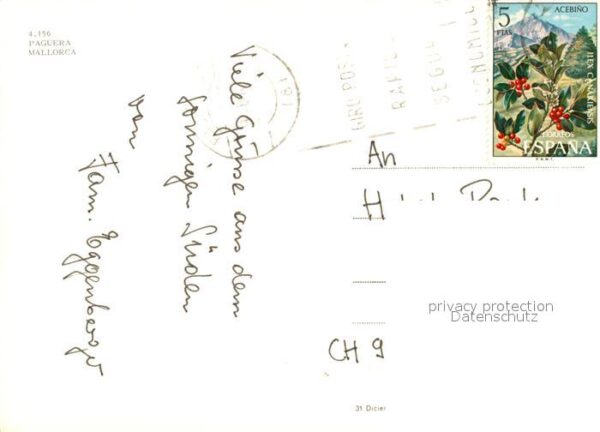 4.156
PAGUERA
MALLORCA
Viele Grüsse aus dem
sonnigen Süden
von
Fam. Eggenberger
181
GIRO POSTAL
RAPIDO
SEGURO
ECONOMICO
5
PTAS
ACEBIÑO
ILEX CANARIENSIS
CORREOS
ESPAÑA
F.N.M.T.
An
H
privacy protection
Datenschutz
CH 9
31 Dicier